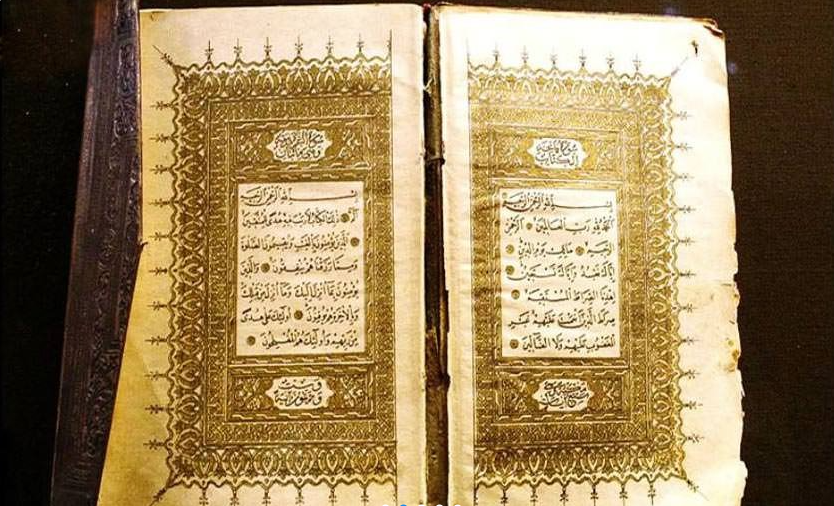 سورة فاتحة
الكتاب
بسم الله الرحمن الرحيم
الحمد لله رب العالمين الرحمن
الرحيم مالك يوم الدين
اياك نعبد واياك نستعين
اهدنا الصراط المستقيم
صراط الذين انعمت عليهم غير
المغضوب عليهم ولا الضالين
سورة البقرة
بسم الله الرحمن الرحيم
الم ذلك الكتاب لا ريب فيه هدى للمتقين
الذين يؤمنون بالغيب ويقيمون الصلوة
ومما رزقناهم ينفقون والذين
يؤمنون بما انزل اليك وما انزل من قبلك
وبالاخرة هم يوقنون اولئك على هدى
من ربهم واولئك هم المفلحون